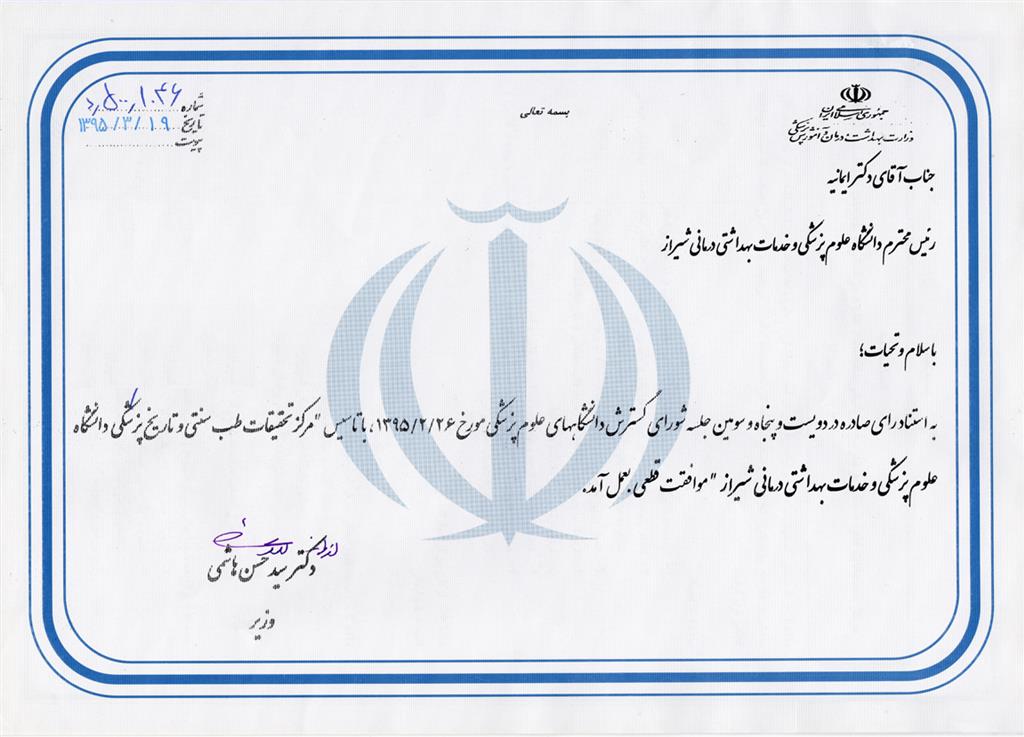 بسمه تعالی
جمهوری اسلامی ایران
وزارت بهداشت، درمان و آموزش پزشکی
شماره
تاریخ ۱۳۹۵/۳/۱۹
پیوست
جناب آقای دکتر ایمانیه
رئیس محترم دانشگاه علوم پزشکی و خدمات بهداشتی درمانی شیراز
با سلام و تحیات؛
به استناد رای صادره در دویست و پنجاه و سومین جلسه شورای گسترش دانشگاههای علوم پزشکی مورخ ۱۳۹۵/۲/۲۶، با تاسیس "مرکز تحقیقات طب سنتی و تاریخ پزشکی دانشگاه
علوم پزشکی و خدمات بهداشتی درمانی شیراز " موافقت قطعی بعمل آمد.
دکتر سید حسن هاشمی
وزیر